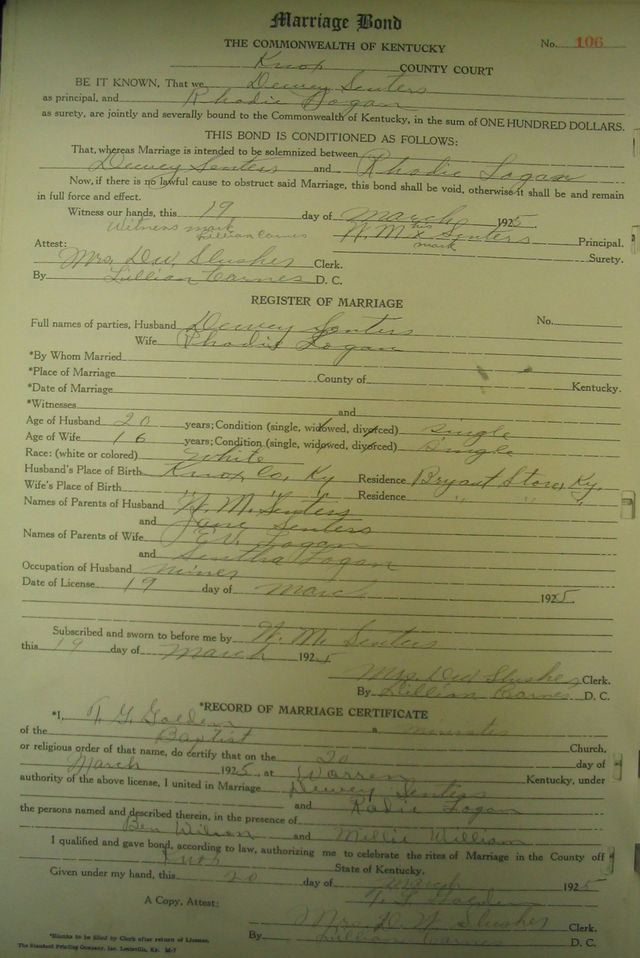 Marriage Bond
THE COMMONWEALTH OF KENTUCKY No. 106
Knox COUNTY COURT
BE IT KNOWN, That we Dewey Senters
as principal, and Rhodie Logan
as surety, are jointly and severally bound to the Commonwealth of Kentucky, in the sum of ONE HUNDRED DOLLARS.
THIS BOND IS CONDITIONED AS FOLLOWS:
That, whereas Marriage is intended to be solemnized between
Dewey Senters and Rhodie Logan
Now, if there is no lawful cause to obstruct said Marriage, this bond shall be void, otherwise it shall be and remain
in full force and effect.
Witness our hands, this 19 day of March 1925.
Witness mark his
Lillian Carnes W. M. x Senters Principal.
mark
Attest: Surety.
Mrs. D.W. Slusher Clerk.
By Lillian Carnes D. C.
REGISTER OF MARRIAGE
Full names of parties, Husband Dewey Senters No.
Wife Rhodie Logan
*By Whom Married
*Place of Marriage County of Kentucky.
*Date of Marriage
*Witnesses and
Age of Husband 20 years; Condition (single, widowed, divorced) single
Age of Wife 16 years; Condition (single, widowed, divorced) single
Race: (white or colored) white
Husband's Place of Birth Knox Co, Ky Residence Bryant Store, Ky.
Wife's Place of Birth " " " Residence " " "
Names of Parents of Husband W. M. Senters
and Jane Senters
Names of Parents of Wife Logan
and Sintha Logan
Occupation of Husband miner
Date of License 19 day of March 1925.
Subscribed and sworn to before me by W. M. Senters
this 19 day of March 1925
Mrs. D.W. Slusher Clerk.
By Lillian Carnes D. C.
*RECORD OF MARRIAGE CERTIFICATE
*I, T. G. Golden a minister
of the Baptist Church,
or religious order of that name, do certify that on the 20 day of
March 1925, at Warren Kentucky, under
authority of the above license, I united in Marriage Dewey Senters
and Radie Logan
the persons named and described therein, in the presence of
Ben Wilson and Millie William
I qualified and gave bond, according to law, authorizing me to celebrate the rites of Marriage in the County off
Knox State of Kentucky.
Given under my hand, this 20 day of March 1925
T. G. Golden
A Copy, Attest: Mrs. D. W. Slusher Clerk.
By Lillian Carnes D. C.
*Blanks to be filled by Clerk after return of License.
The Standard Printing Company, Inc. Louisville, Ky. M-7